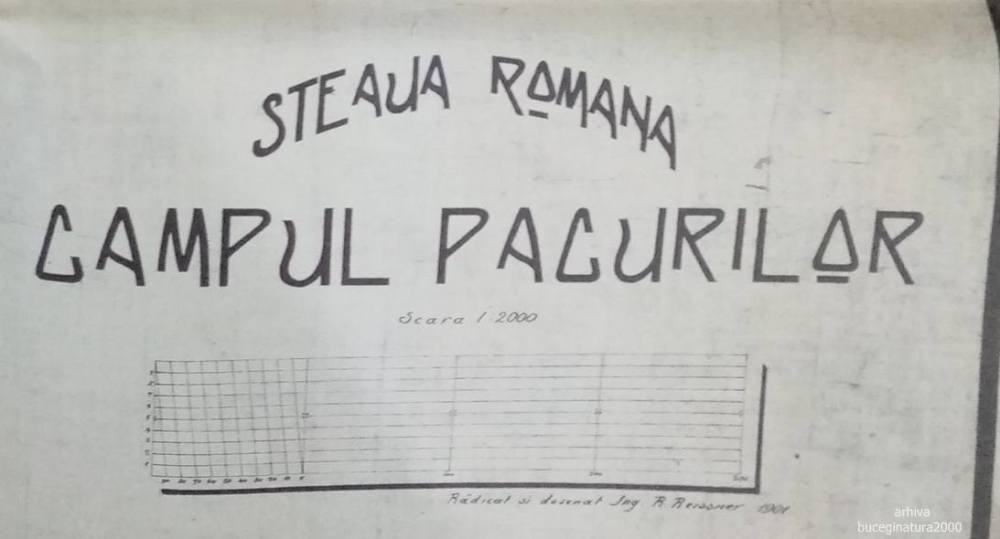 STEAUA ROMANA
CAMPUL PACURILOR
Scara 1:2000
Rădicat si desenat Ing R. Reissner 1901
arhiva
buceginatura2000